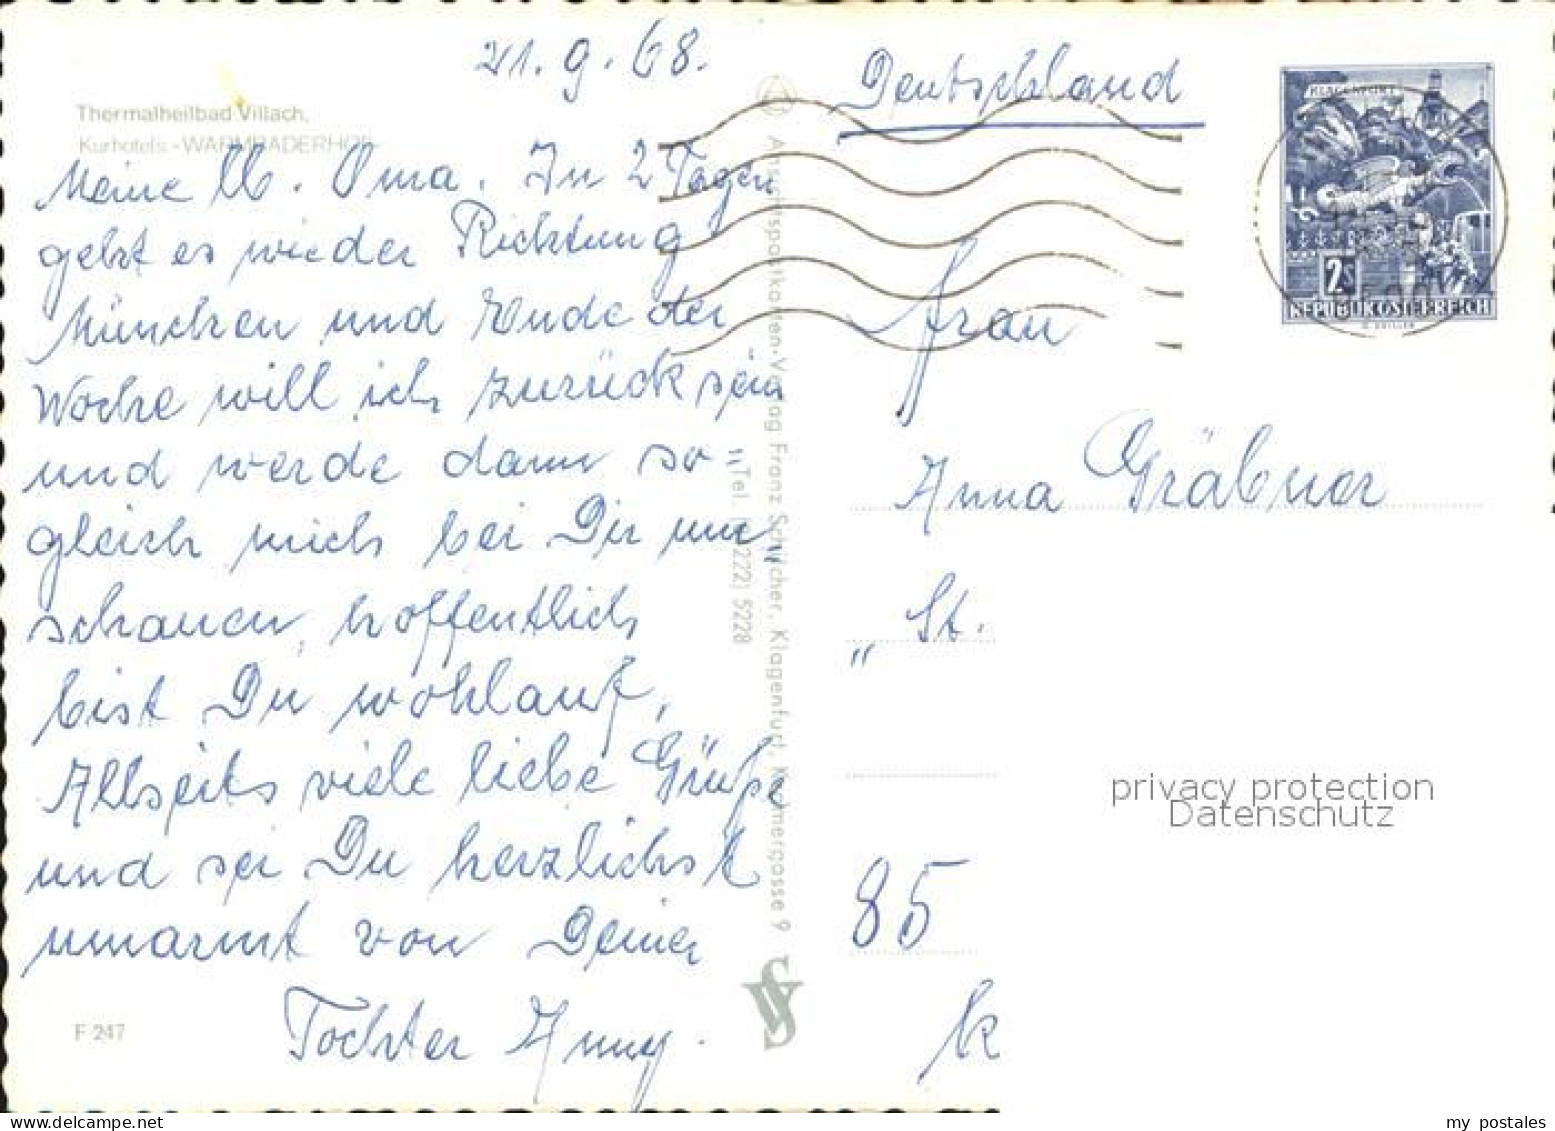 21. 9. 68.
Thermalheilbad Villach,
Kurhotels «WARMBADERHOF»
Meine lb. Oma. In 2 Tagen
geht es wieder Richtung
München und Ende der
Woche will ich zurück sein
und werde dann so=
gleich mich bei Dir um„
schauen, hoffentlich
bist Du wohlauf,
Allseits viele liebe Grüße
und sei Du herzlichst
umarmt von Deiner
Tochter Anny.
F 247
Ansichtspostkarten-Verlag Franz Schilcher, Klagenfurt, 9
Tel. 5228
Deutschland
KLAGENFURT
2S
REPUBLIK ÖSTERREICH
Frau
Anna Gräbner
„ St.
85
k
privacy protection
Datenschutz
my postales